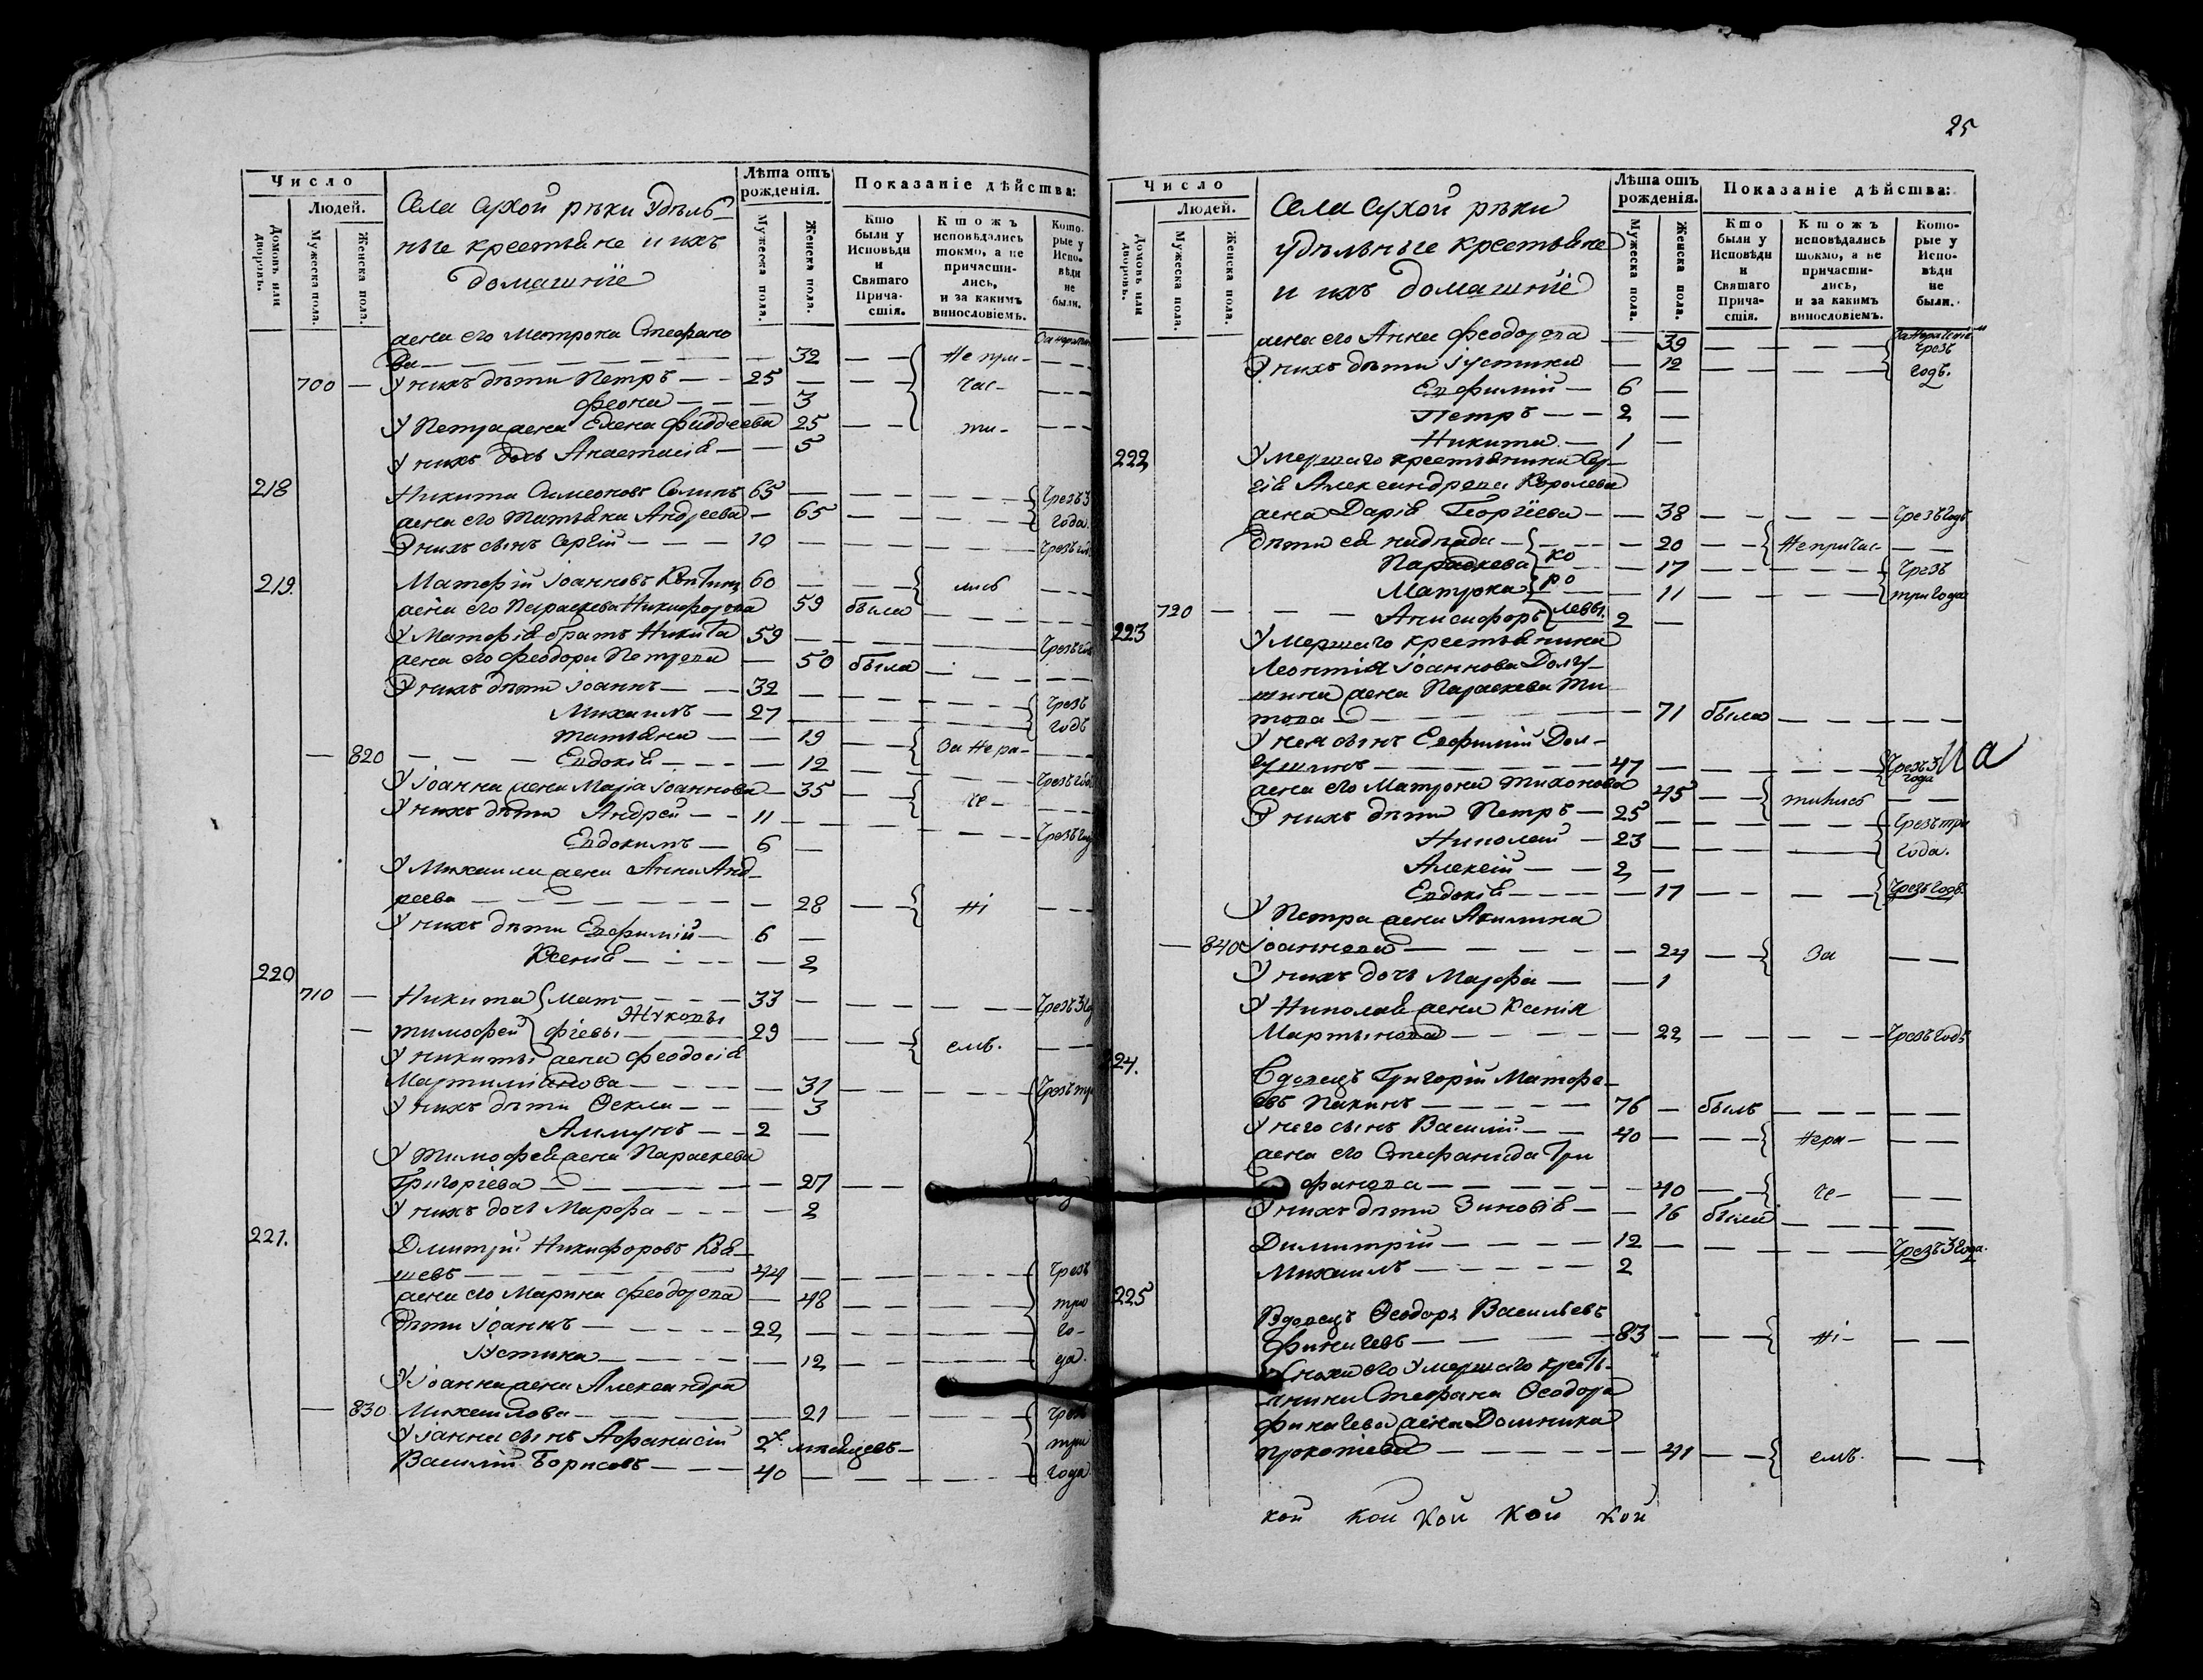 Число
Людей.
Домовъ или дворовъ.
Мужеска пола.
Женска пола.
Села Сухой рѣки Удѣль-
ные крестьяне и ихъ
домашніе
Лѣта отъ рожденія.
Мужеска пола.
Женска пола.
Показаніе дѣйства:
Кто были у Исповѣди и Святаго Причастія.
Ктожъ исповѣдались токмо, а не причастились, и за какимъ винословіемъ.
Которые у Исповѣди не были.
жена его Матрона Стефано
ва — 32 — Не при-
700 — У нихъ дѣти Петръ — 25 — час-
Феона — 3
У Петра жена Елена Фаддеева 25 — ти-
У нихъ дочь Анастасія — 5
218 Никита Симеоновъ 65 — Чрезъ 3
жена его Татьяна Андреева — 65 — года.
У нихъ сынъ Сергій — 10 — Чрезъ
219. Матфій Іоанновъ 60 — лись
жена его Параскева Никифорова 59 была
У Матфія братъ Никита 59 — Чрезъ
жена его Феодора Петрова — 50 была
У нихъ дѣти Іоаннъ — 32 — Чрезъ
Михаилъ — 27 — годъ
Татьяна — 19 — За нера-
820 — Евдокія — 12
У Іоанна жена Марія Іоаннова — 35 — че-
У нихъ дѣти Андрей — 11
Евдокимъ — 6 — Чрезъ
У Михаила жена Анна Анд-
реева — 28 — ні
У нихъ дѣти Евфимій — 6
Ксенія — 2
220
710 — Никита { Мат- — 33 — Чрезъ 3
Жуковы
— Тимофей { фіевы — 29 — емъ.
У Никиты жена Феодосія
Мартиміанова — 31 — Чрезъ
У нихъ дѣти Ѳекла — 3
2
У Тимофея жена Параскева
Григоріева — 27
У нихъ дочь Марфа — 2
221. Дмитрій Никифоровъ
шевъ — 44 — Чрезъ
жена его Марина Феодорова — 48 — три
Дѣти Іоаннъ — 22 — го-
Іустина — 12 — да.
У Іоанна жена Александра
830 Михаилова — 21 — Чрезъ
У Іоанна сынъ Афанасій 2х мѣсяцевъ — три
Василій Борисовъ — 40 — года
25
Число
Людей.
Домовъ или дворовъ.
Мужеска пола.
Женска пола.
Села Сухой рѣки
удѣльные крестьяне
и ихъ домашніе
Лѣта отъ рожденія.
Мужеска пола.
Женска пола.
Показаніе дѣйства:
Кто были у Исповѣди и Святаго Причастія.
Ктожъ исповѣдались токмо, а не причастились, и за какимъ винословіемъ.
Которые у Исповѣди не были.
жена его Анна Феодорова — 39 — Чрезъ
У нихъ дѣти Іустина — 12 — годъ.
Евфимій — 6
Петръ — 2
Никита — 1
222 Умершаго крестьянина Сер-
гія Александрова Королева
жена Дарія Георгіева — 38 — Чрезъ годъ
Дѣти ея — 20 — Не причас-
Параскева { ко — 17 — Чрезъ
Матрона { ро — 11 — три года
720 — Анисифоръ { левы. 2
223 Умершаго крестьянина
Леонтія Іоаннова Долгу-
шина жена Параскева Ти
това — 71 была
У нея сынъ Евфимій Дол-
гушинъ — 47 — Чрезъ 3 года
жена его Матрона Тихонова 45 — тились
У нихъ дѣти Петръ — 25 — Чрезъ три
Николай — 23 — года.
Алексій — 2
Евдокія — 17 — Чрезъ годъ.
У Петра жена Акилина
840 Іоаннова — 24 — За
У нихъ дочь Марфа — 1
У Николая жена Ксенія
Мартынова — 22 — Чрезъ годъ
24. Вдовецъ Григорій Матфе-
евъ — 76 — былъ
У него сынъ Василій — 40 — нера-
жена его Стефанида Три
фанова — 40 — че-
У нихъ дѣти Зиновія — 16 была
Димитрій — 12 — Чрезъ 3 года.
Михаилъ — 2
225 Вдовецъ Ѳеодоръ Васильевъ
Финачевъ — 83 — ні-
его умершаго кресть-
янина Стефана Ѳеодора
Финачева жена Домника
Прокопіева — 41 — емъ.
кой кой кой кой кой